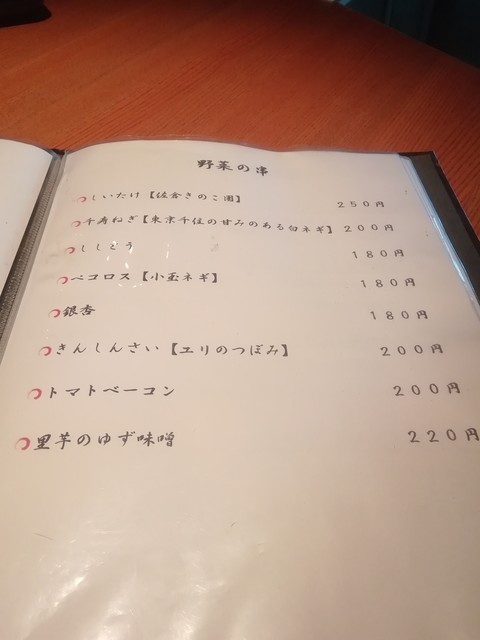 野菜の串
しいたけ【佐倉きのこ園】 250円
千寿ねぎ【東京千住の甘みのある白ネギ】 200円
ししとう 180円
ペコロス【小玉ネギ】 180円
銀杏 180円
きんしんさい【ユリのつぼみ】 200円
トマトベーコン 200円
里芋のゆず味噌 220円